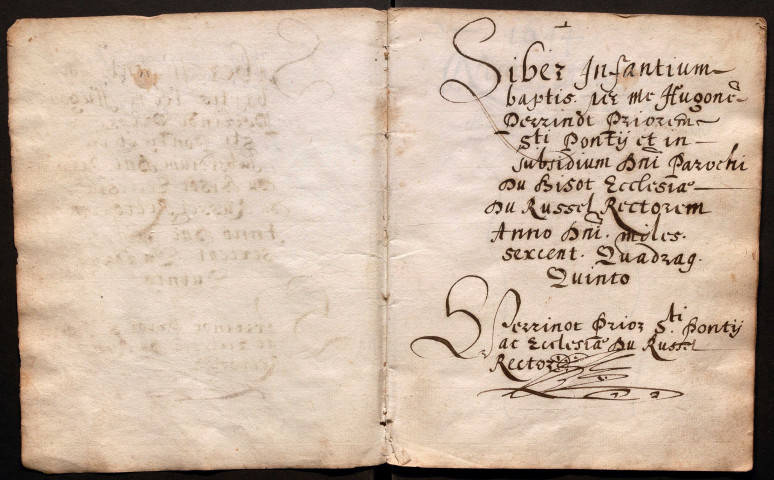 Liber Infantium
baptis. per me Hugonē
Perrinot Priorem
Sti Pontij et in
subsidium Dni Parochi
Du Bisot Ecclesiæ
Du Russel Rectorem
Anno Dni. miles.
sexcent. Quadrag.
Quinto
Perrinot Prior Sti Pontij
ac Ecclesiæ Du Russel
Rector